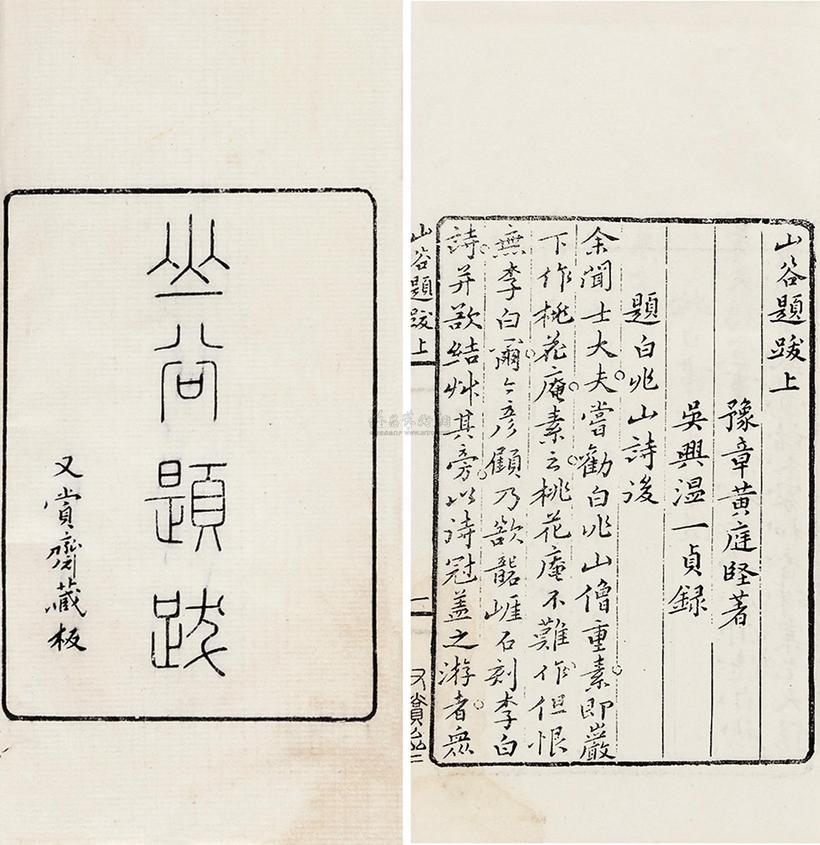 山谷題跋
又賞齋藏板
山谷題跋上
豫章黃庭堅著
吳興溫一貞錄
題白兆山詩後
余聞士大夫嘗勸白兆山僧重素即巖
下作桃花庵素云桃花庵不難作但恨
無李白爾今彥顧乃欲韶崕石刻李白
詩并欲結艸其旁以詩冠蓋之游者衆
山谷題跋上
一
又賞